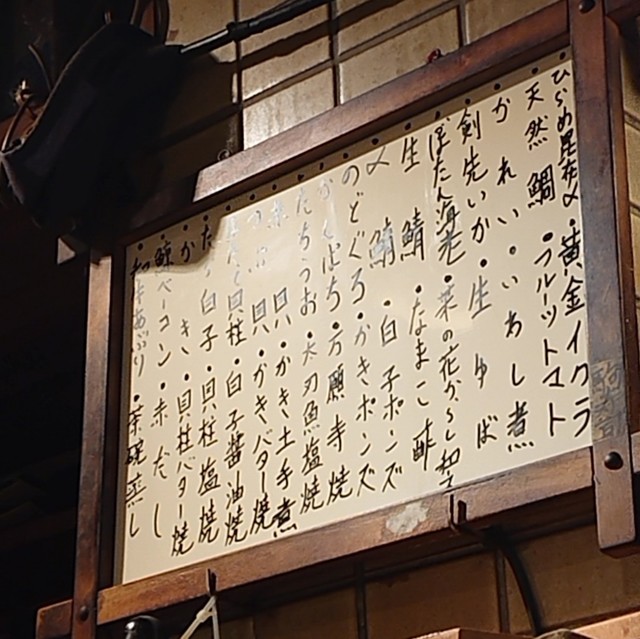 ひらめ昆布〆・黄金イクラ
天然鯛・フルーツトマト
かれい・いわし煮
剣先いか・生ゆば
ぼたん海老・菜の花からし和え
生鯖・なまこ酢
〆鯖・白子ポンズ
のどぐろ・かきポンズ
かんぱち・万願寺焼
たちうお・太刀魚塩焼
貝・かき土手煮
貝・かきバター焼
貝柱・白子醤油焼
たら白子・貝柱塩焼
かき・貝柱バター焼
鯨ベーコン・赤だし
あぶり・茶碗蒸し